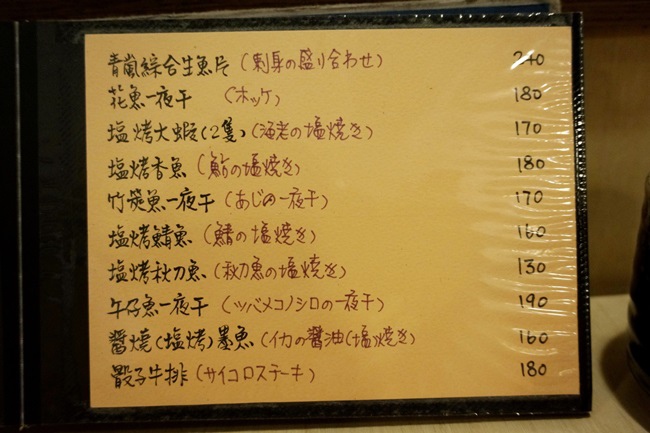 青嵐綜合生魚片(刺身の盛り合わせ) 240
花魚一夜干 (ホッケ) 180
塩烤大蝦(2隻)(海老の塩焼き) 170
塩烤香魚(鮎の塩焼き) 180
竹筴魚一夜干(あじの一夜干) 170
塩烤鯖魚(鯖の塩焼き) 160
塩烤秋刀魚(秋刀魚の塩焼き) 130
午仔魚一夜干(ツバメコノシロの一夜干) 190
醬燒(塩烤)墨魚(イカの醤油(塩)焼き) 160
骰子牛排(サイコロステーキ) 180